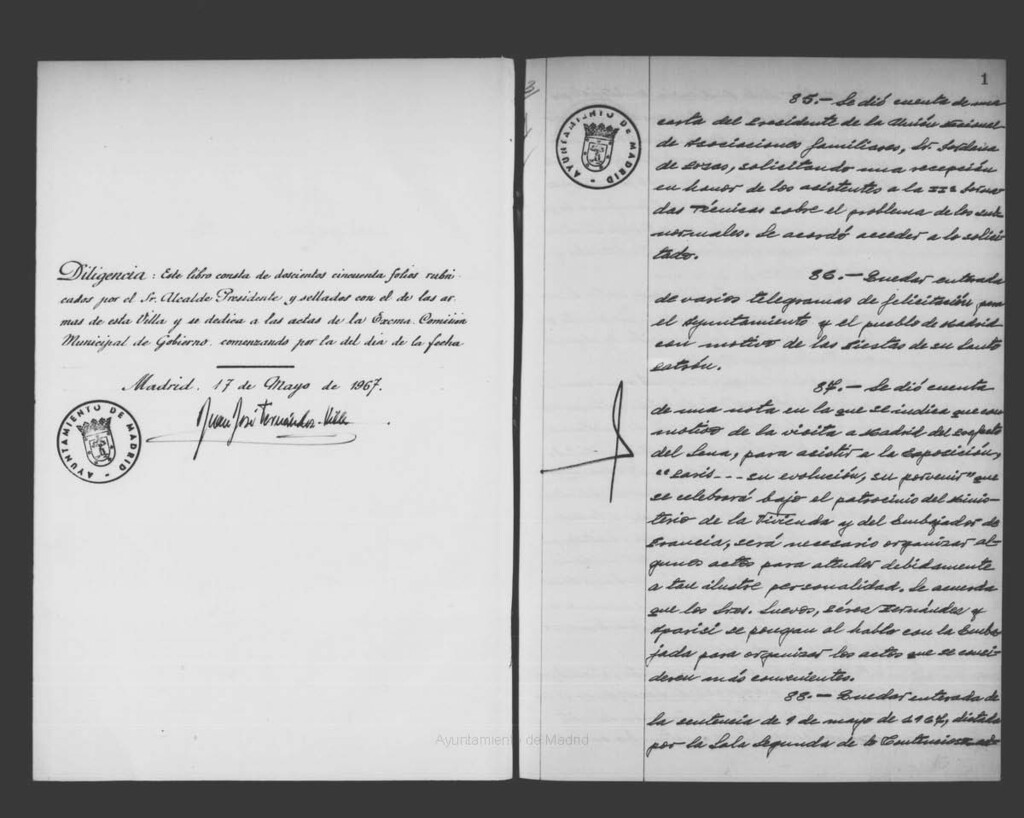 Diligencia: Este libro consta de doscientos cincuenta folios rubri-
cados por el Sr. Alcalde Presidente y sellados con el de las ar-
mas de esta Villa y se dedica a las actas de la Excma. Comisión
Municipal de Gobierno, comenzando por la del día de la fecha
Madrid, 17 de Mayo de 1967.
Juan José Fernández-Villa
AYUNTAMIENTO DE MADRID
1
AYUNTAMIENTO DE MADRID
85.- Se dió cuenta de una
carta del Presidente de la Unión Nacional
de Asociaciones Familiares, Sr. Jordana
de Pozas, solicitando una recepción
en honor de los asistentes a la IIª Jorna
das Técnicas sobre el problema de los sub
normales. Se acordó acceder a lo solici
tado.
86.- Quedar enterada
de varios telegramas de felicitación para
el Ayuntamiento y el pueblo de Madrid
con motivo de las Fiestas de su Santo
Patrón.
87.- Se dió cuenta
de una nota en la que se indica que con
motivo de la visita a Madrid del Prefecto
del Sena, para asistir a la Exposición,
"Paris... su evolución, su porvenir" que
se celebrará bajo el patrocinio del Minis-
terio de la Vivienda y del Embajador de
Francia, será necesario organizar al-
gunos actos para atender debidamente
a tan ilustre personalidad. Se acuerda
que los Sres. Suevos, Pérez Hernández y
Aparisi se pongan al habla con la Emba-
jada para organizar los actos que se consi-
deren más convenientes.
88.- Quedar enterada de
la sentencia de 9 de mayo de 1967, dictada
por la Sala Segunda de lo Contencioso-ad-
Ayuntamiento de Madrid